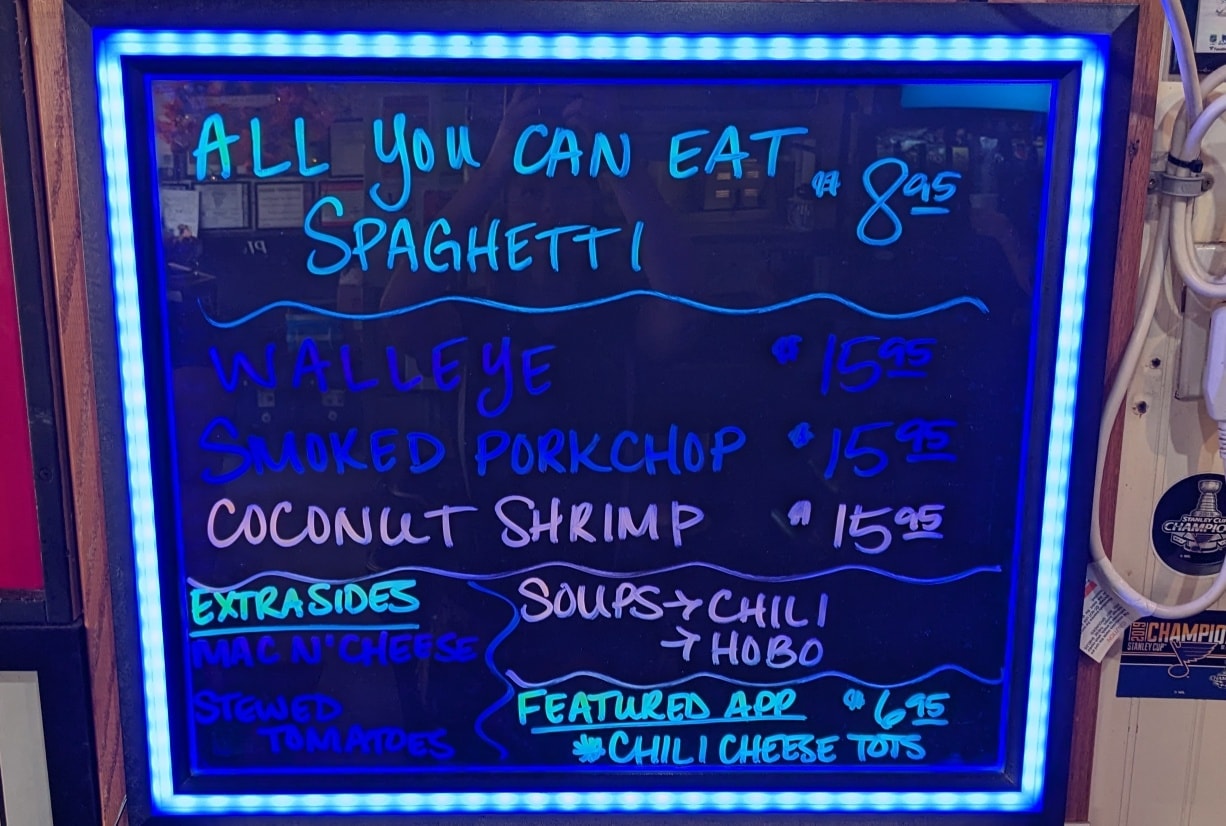 ALL YOU CAN EAT
SPAGHETTI $8.95
WALLEYE $15.95
SMOKED PORKCHOP $15.95
COCONUT SHRIMP $15.95
EXTRA SIDES
MAC N' CHEESE
STEWED
TOMATOES
SOUPS → CHILI
→ HOBO
FEATURED APP $6.95
* CHILI CHEESE TOTS
STANLEY CUP
CHAMPIO
2019
CHAMPIO
STANLEY CUP